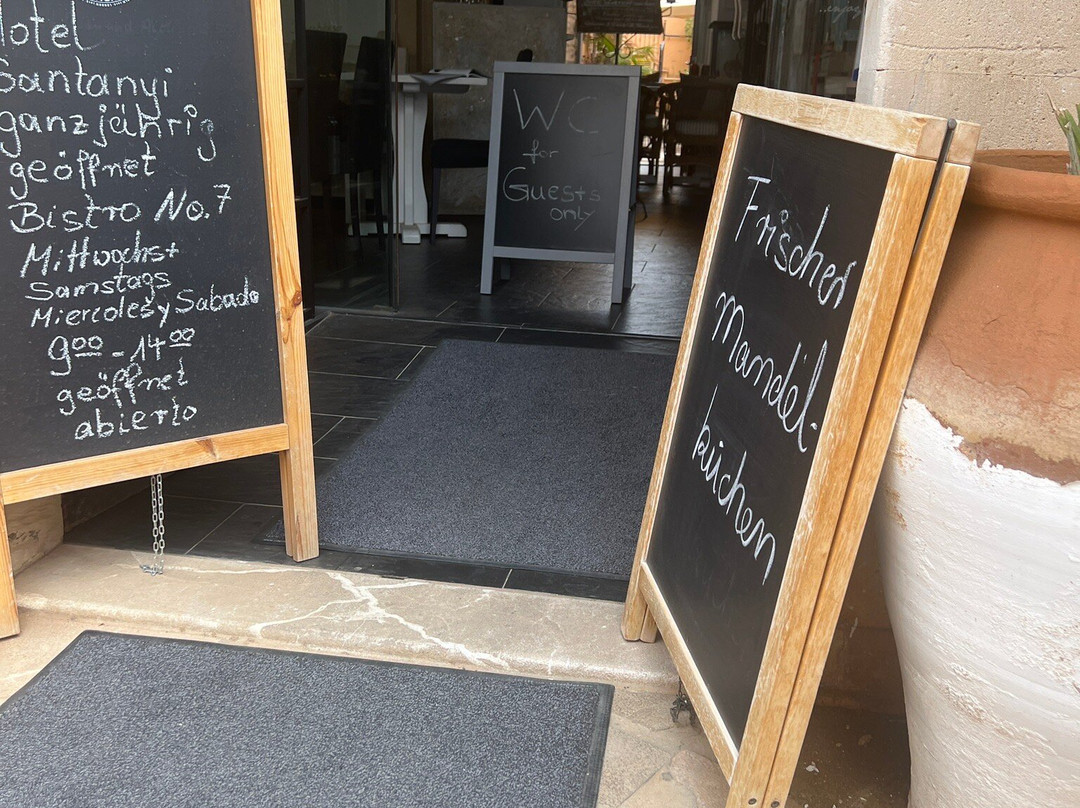 Hotel
Santanyi
ganzjährig
geöffnet
Bistro No.7
Mittwochs+
Samstags
Miercoles y Sabado
9⁰⁰ - 14⁰⁰
geöffnet
abierto
WC
for
Guests
only
Frischer
Mandel-
kuchen